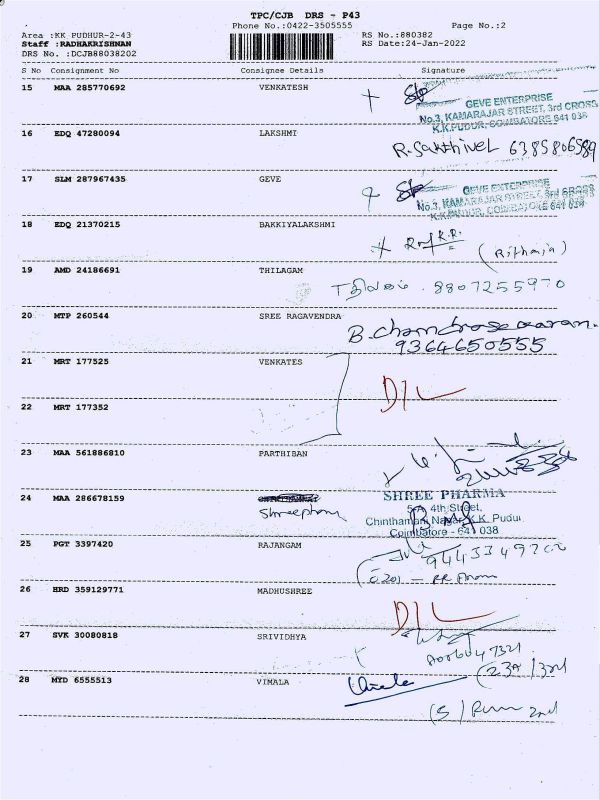 TPC/CJB DRS - P43
Phone No.:0422-3505555 Page No.:2
Area :KK PUDHUR-2-43 RS No.:880382
Staff :RADHAKRISHNAN RS Date:24-Jan-2022
DRS No. :DCJB88038202
S No Consignment No Consignee Details Signature
15 MAA 285770692 VENKATESH
GEVE ENTERPRISE
No.3, KAMARAJAR STREET, 3rd CROSS
K.K.PUDUR, COIMBATORE 641 038
16 EDQ 47280094 LAKSHMI
R. Sakthivel 6385806589
17 SLM 287967435 GEVE
GEVE ENTERPRISE
No.3, KAMARAJAR STREET, 3rd CROSS
K.K.PUDUR, COIMBATORE 641 038
18 EDQ 21370215 BAKKIYALAKSHMI
19 AMD 24186691 THILAGAM
8807255970
20 MTP 260544 SREE RAGAVENDRA
9364650555
21 MRT 177525 VENKATES
D/L
22 MRT 177352
23 MAA 561886810 PARTHIBAN
24 MAA 286678159
SHREE PHARMA
5-A, 4th Street,
Chinthamani Nagar, K.K. Pudur
Coimbatore - 641 038
25 PGT 3397420 RAJANGAM
26 HRD 359129771 MADHUSHREE
D/L
27 SVK 30080818 SRIVIDHYA
28 MYD 6555513 VIMALA